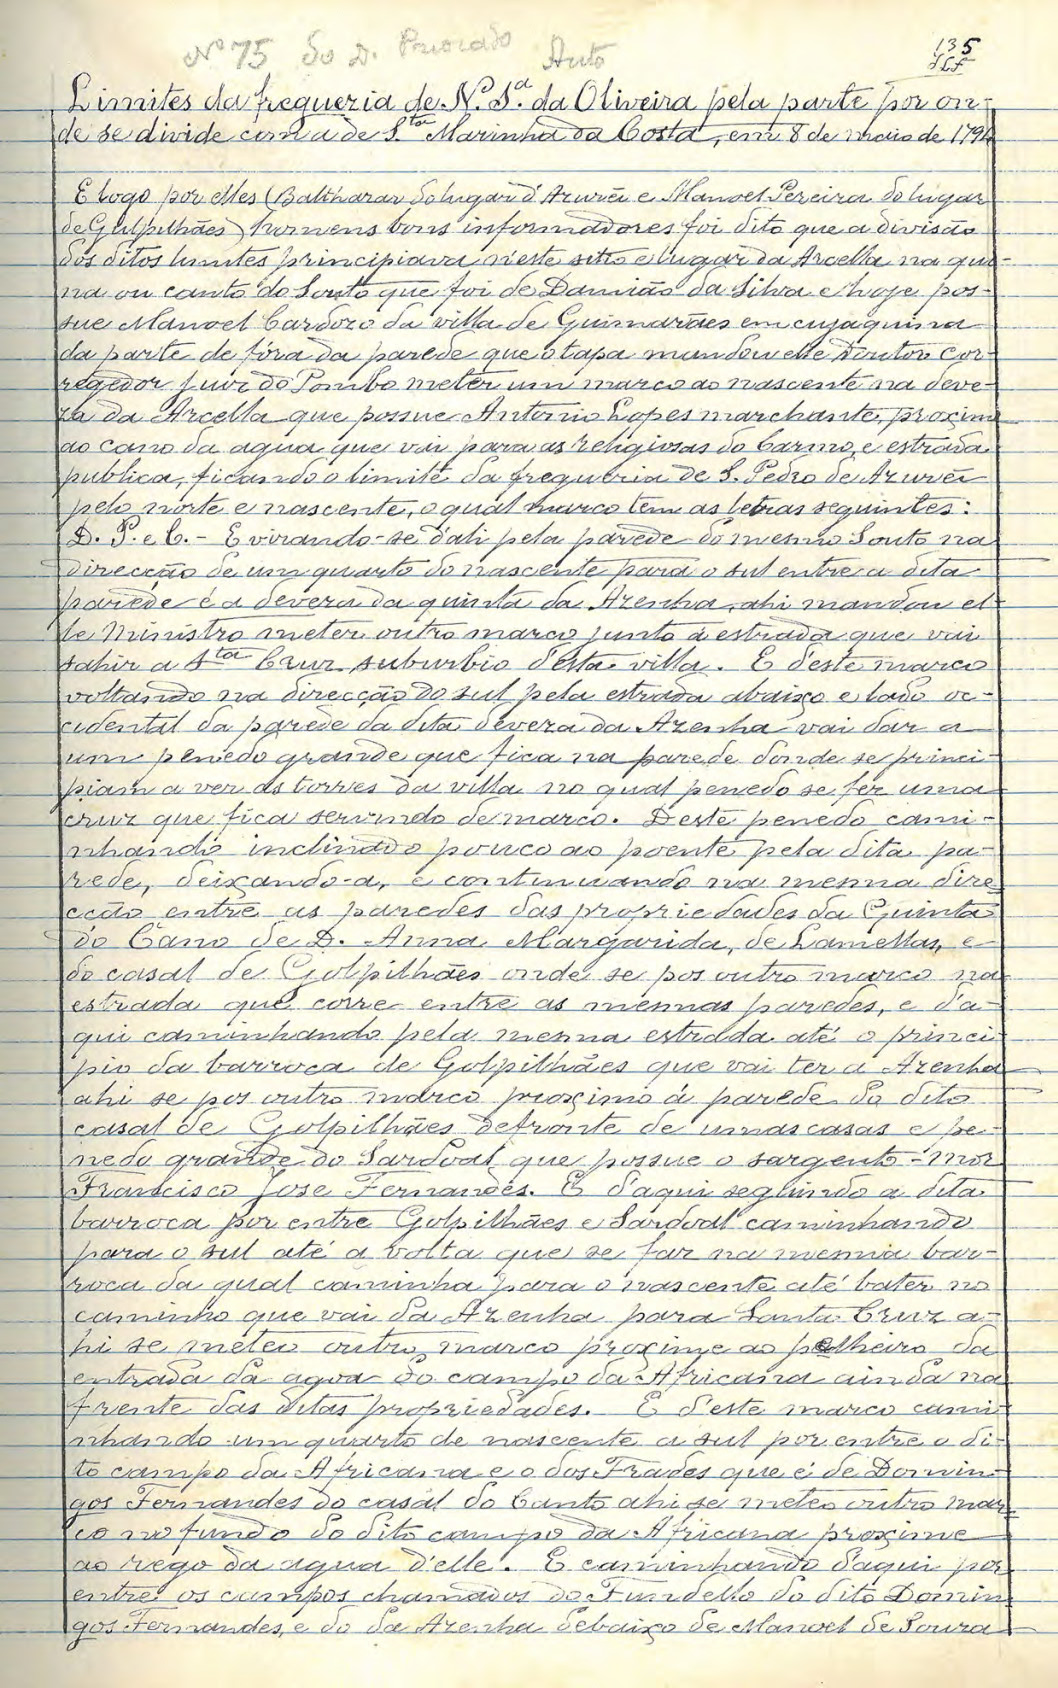 Nº 75 do D. Priorado Auto
135
Limites da freguezia de N.ª S.ª da Oliveira pela parte por on-
de se divide com a de S.ta Marinha da Costa, em 8 de maio de 179
E logo por elles (Balthazar do lugar d'Azurei e Manoel Pereira do lugar
de Gulpilhães) homens bons informadores foi dito que a divisão
dos ditos limites principiava n'este sitio e lugar da Arcella na qui-
na ou canto do Souto que foi de Damião da Silva e hoje pos-
sue Manoel Cardozo da villa de Guimarães em cuja quina
da parte de fóra da parede que o tapa mandou elle Doutor Cor-
regedor Juiz do Tombo meter um marco ao nascente na deve-
za da Arcella que possue Antonio Lopes marchante, proximo
ao cano da agua que vai para as religiosas do Carmo, e estrada
publica, ficando o limite da freguezia de S. Pedro de Azurei
pelo norte e nascente, o qual marco tem as letras seguintes:
D. P. e C. - E virando-se d'ali pela parede do mesmo Souto na
direcção de um quarto do nascente para o sul entre a dita
parede e a deveza da quinta da Azenha, ahi mandou el-
le Ministro meter outro marco junto á estrada que vai
sahir a S.ta Cruz suburbio d'esta villa. E d'este marco
voltando na direcção do sul pela estrada abaixo e lado oc-
cidental da parede da dita deveza da Azenha vai dar a
um penedo grande que fica na parede donde se princi-
piam a ver as torres da villa no qual penedo se fez uma
cruz que fica servindo de marco. Deste penedo cami-
nhando inclinado pouco ao poente pela dita pa-
rede, deixando-a, e continuando na mesma dire
cção entre as paredes das propriedades da Quinta
do Cano de D. Anna Margarida, de Lamellas, e
do casal de Golpilhães onde se pos outro marco na
estrada que corre entre as mesmas paredes, e d'a-
qui caminhando pela mesma estrada até o princi-
pio da barroca de Golpilhães que vai ter a Azenha
ahi se pos outro marco proximo á parede do dito
casal de Golpilhães defronte de umas casas e pe-
nedo grande do Sardoal que possue o sargento-mor
Francisco José Fernandes. E d'aqui seguindo a dita
barroca por entre Golpilhães e Sardoal caminhando
para o sul até a volta que se faz na mesma bar-
roca da qual caminha para o nascente até bater no
caminho que vai da Azenha para Santa Cruz a-
hi se meteo outro marco proximo ao palheiro da
entrada da agoa do campo da Africana ainda na
frente das ditas propriedades. E d'este marco cami-
nhando um quarto de nascente a sul por entre o di-
to campo da Africana e o dos Frades que é de Domin-
gos Fernandes do casal do Canto ahi se meteo outro mar-
co no fundo do dito campo da Africana proximo
ao rego da agua d'elle. E caminhando d'aqui por
entre os campos chamados do Fundello do dito Domin-
gos Fernandes, e do da Azenha debaixo de Manoel de Souza